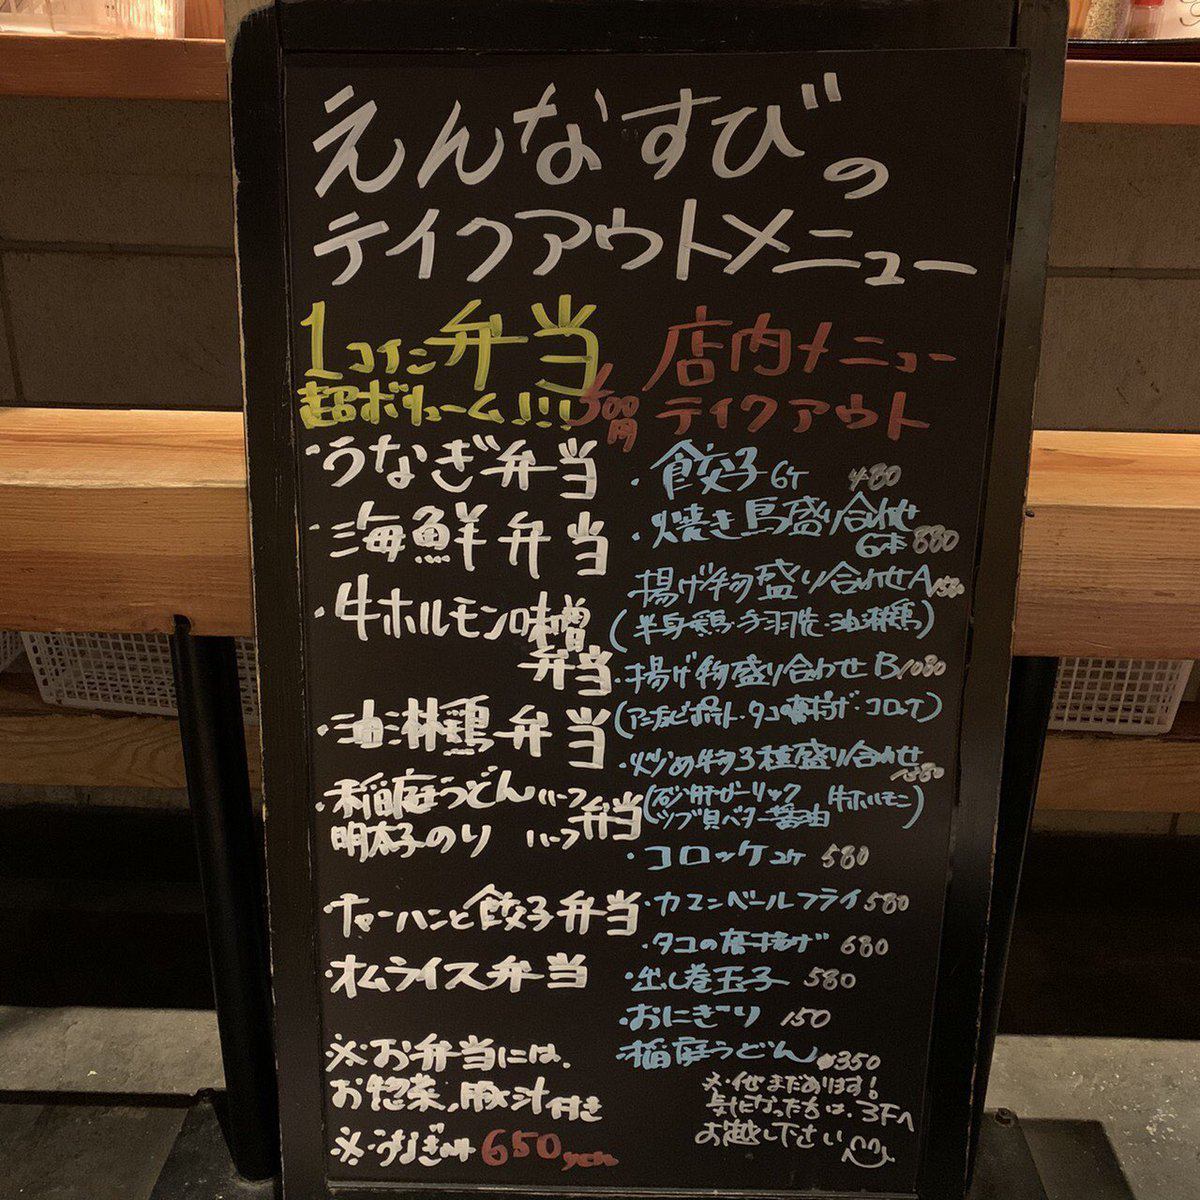 えんなすびの
テイクアウトメニュー
1コイン弁当
超ボリューム!!! 500円
・うなぎ弁当
・海鮮弁当
・牛ホルモン味噌
弁当
・油淋鶏弁当
・稲庭うどんハーフ弁当
明太子のりハーフ
・チャーハンと餃子弁当
・オムライス弁当
※お弁当には、
お惣菜、豚汁付き
※うなぎは 650yen
店内メニュー
テイクアウト
・餃子6ケ 480
・焼き鳥盛り合わせ
6本 880
揚げ物盛り合わせA
(半身鶏・手羽先・油淋鶏)
・揚げ物盛り合わせB 1080
(アンチョビポテト・タコ唐揚げ・コロッケ)
・炒め物3種盛り合わせ
(砂肝ガーリック 牛ホルモン
ツブ貝バター醤油)
・コロッケ2ケ 580
・カマンベールフライ 580
・タコの唐揚げ 680
・出し巻玉子 580
・おにぎり 150
・稲庭うどん 350
※他まだあります!
気になった方は、3Fへ
お越し下さい